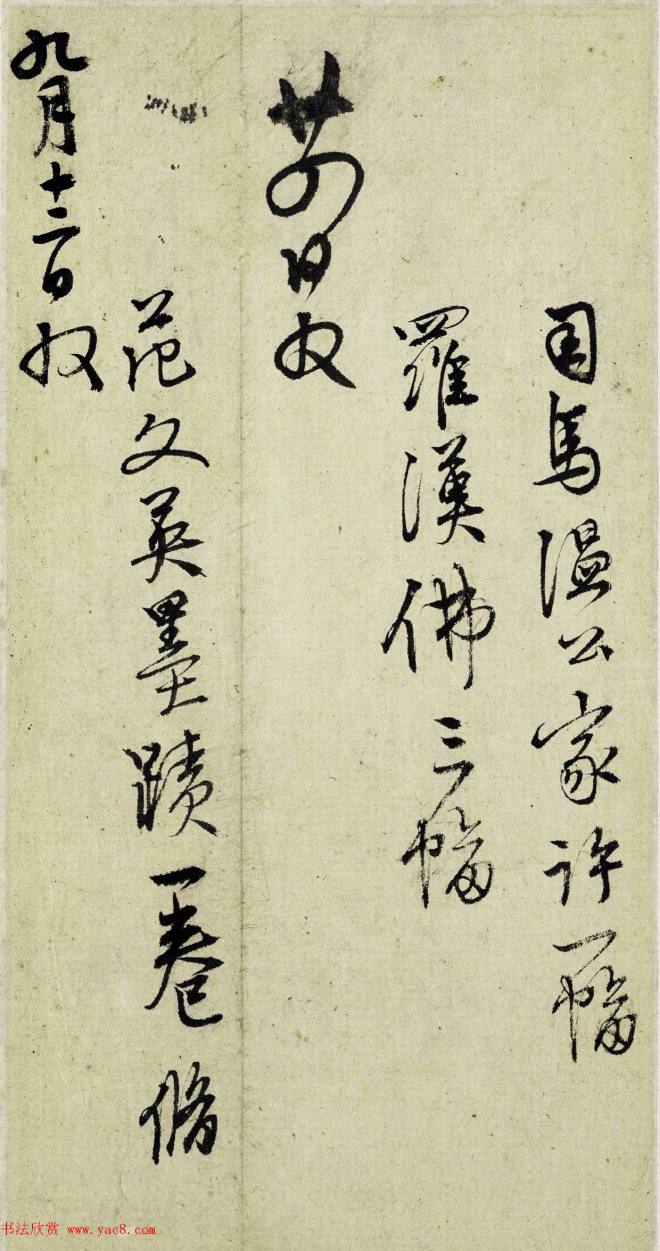 司馬温公家許一幅
羅漢佛三幅
廿四日收
范文英墨蹟一卷 脩
九月十二日收
书法欣赏 www.yac8.com